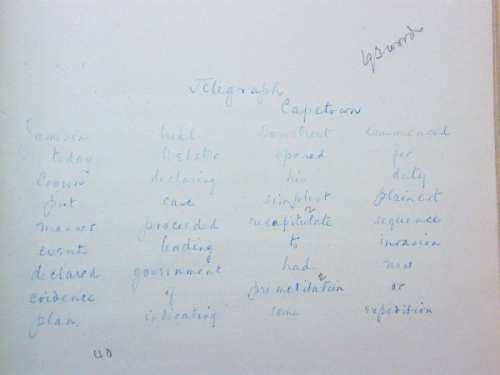 word
Telegraph
Capetown
Jameson Bowstreet commenced
today Webster opened for
Crown declaring his duty
put case simplest plainest
2
manner proceeded recapitulate sequence
events leading to invasion
declared government had now
2
evidence of premeditation or
plan indicating some expedition
40